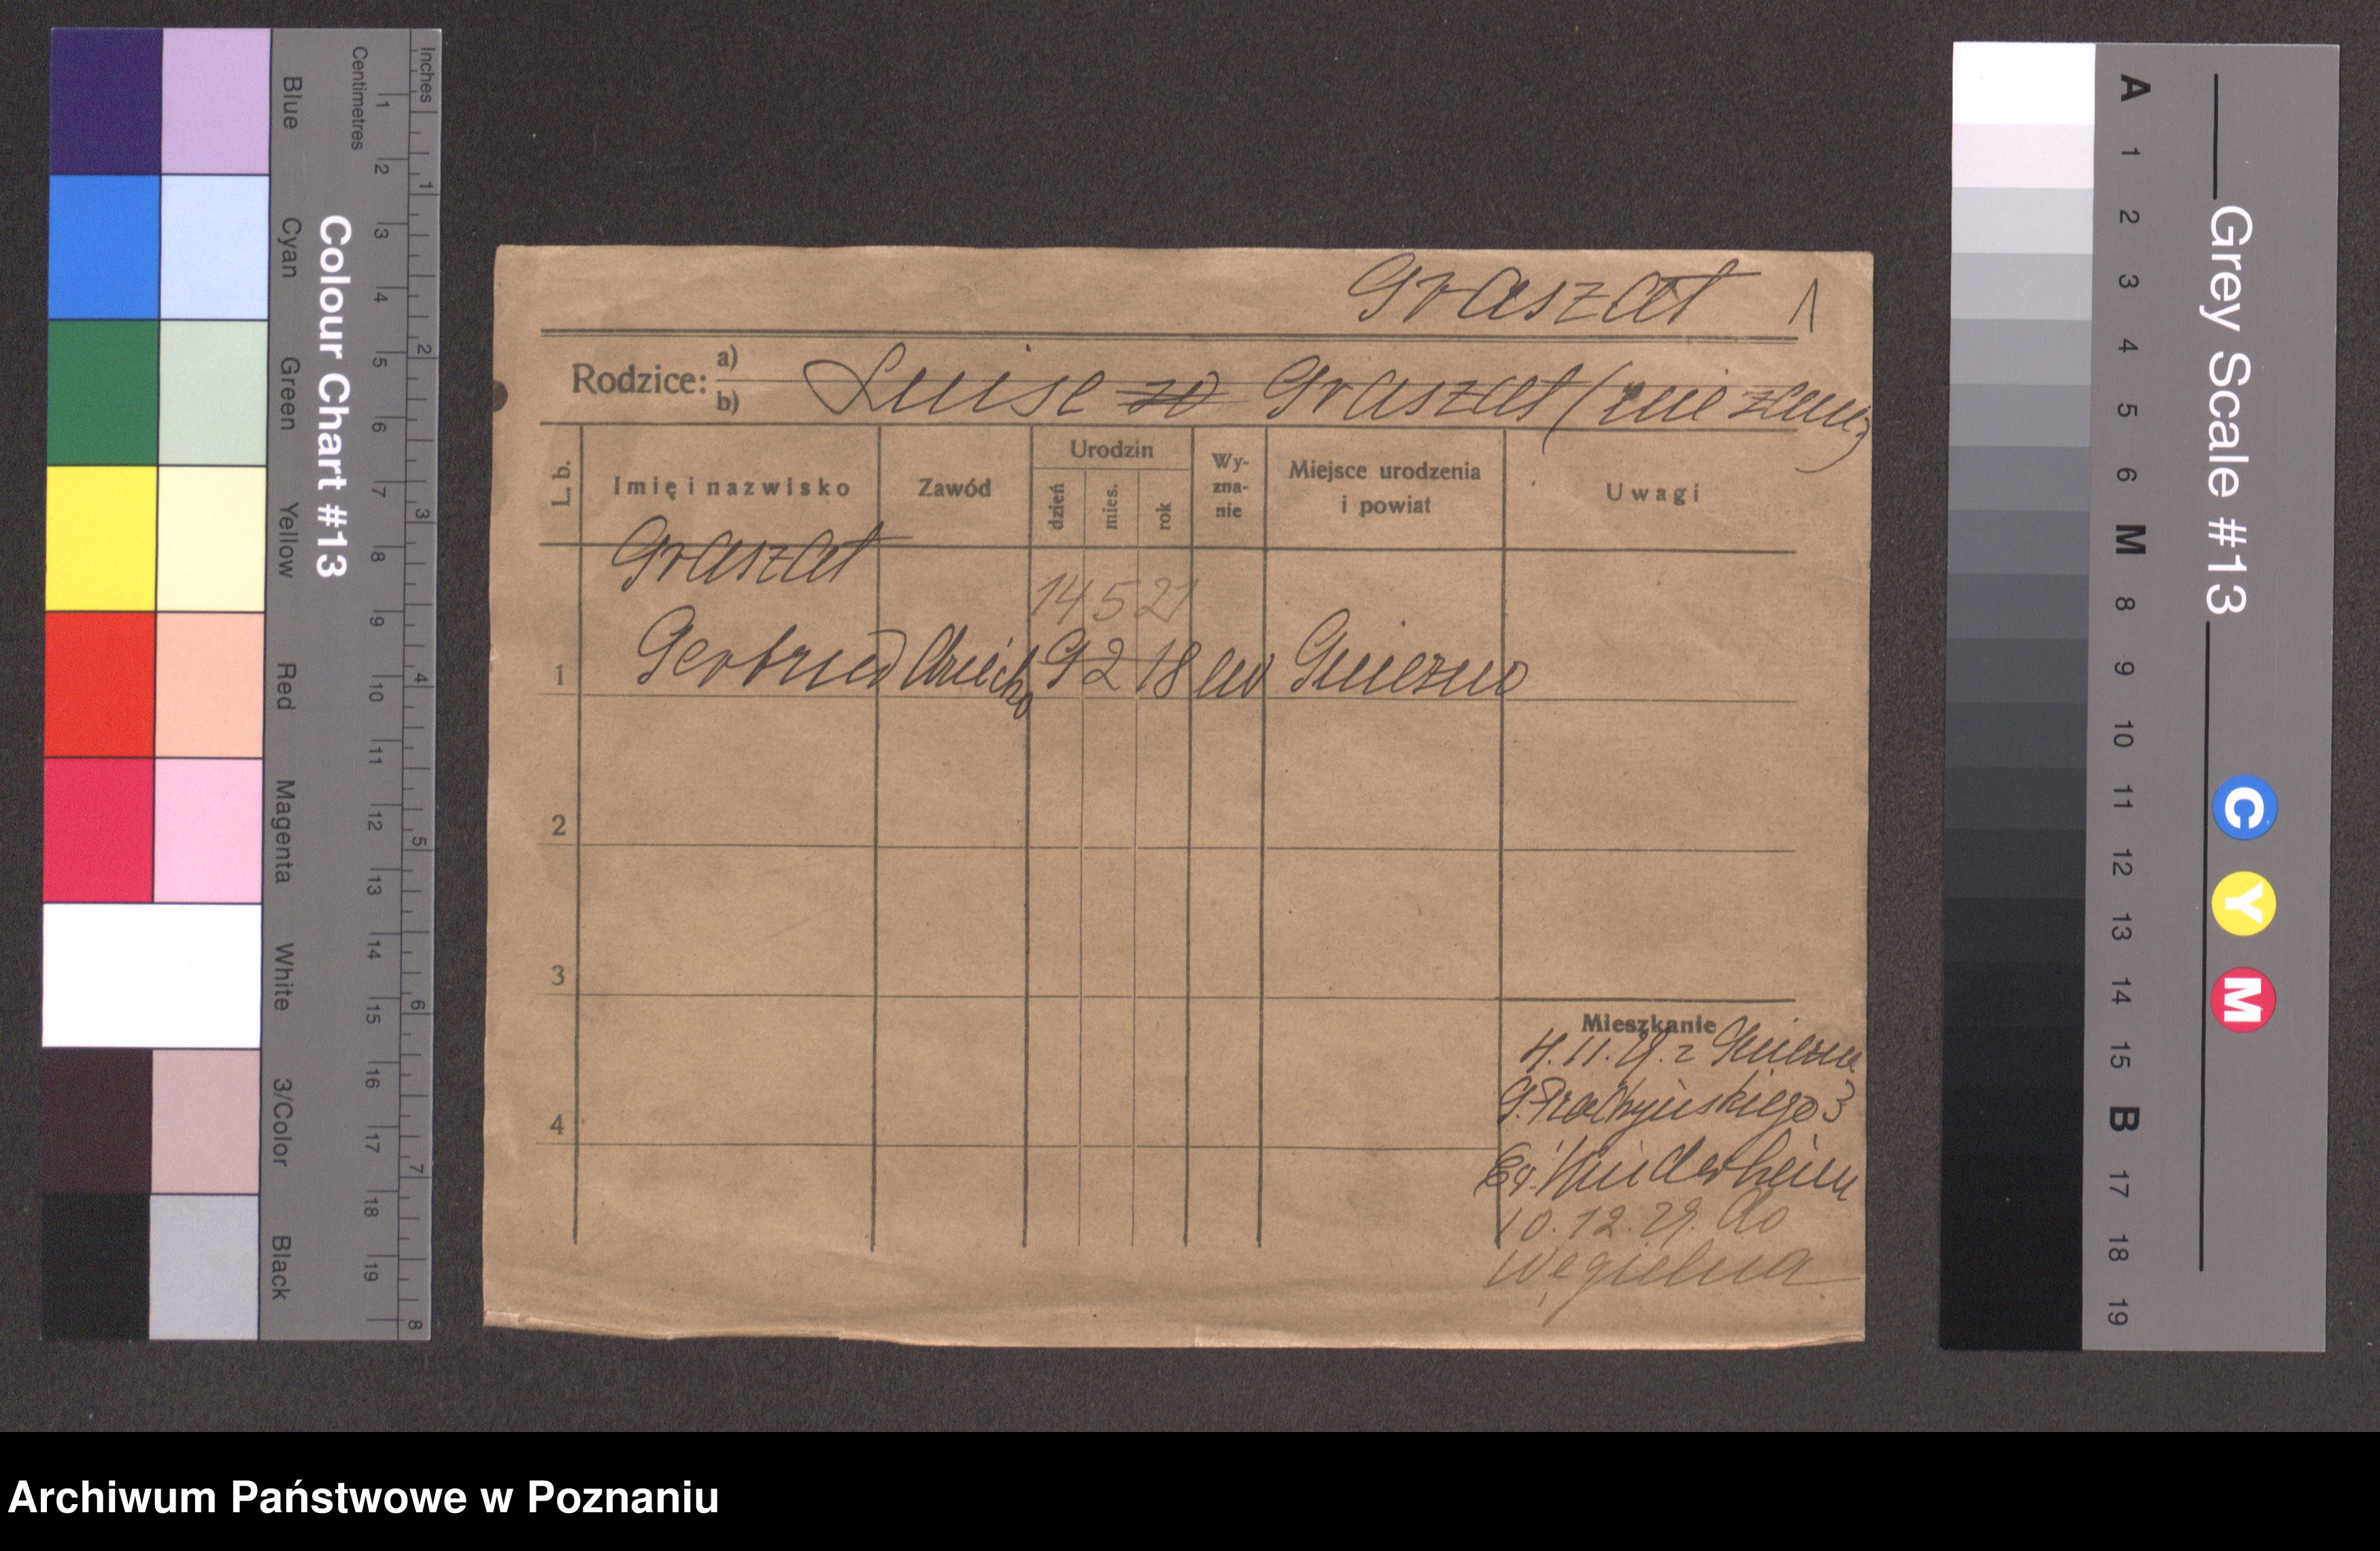 Graszat 1
Rodzice: a) b) Luise zd Graszat (nie zam)
L. b.
Imię i nazwisko
Zawód
Urodzin
dzień
mies.
rok
Wy-
zna-
nie
Miejsce urodzenia
i powiat
Uwagi
Graszat
14 5 21
1 Gertrud dziecko 9 2 18 ew Gniezno
2
3
4
Mieszkanie
4. 11. 29. z Gniezna
3
Ev. Kinderheim
10. 12. 29. do
Węgielna
Colour Chart #13
Inches
Centimetres
1 2 3 4 5 6 7 8
1 2 3 4 5 6 7 8 9 10 11 12 13 14 15 16 17 18 19
Blue
Cyan
Green
Yellow
Red
Magenta
White
3/Color
Black
Grey Scale #13
A 1 2 3 4 5 6 M 8 9 10 11 12 13 14 15 B 17 18 19
C Y M
Archiwum Państwowe w Poznaniu